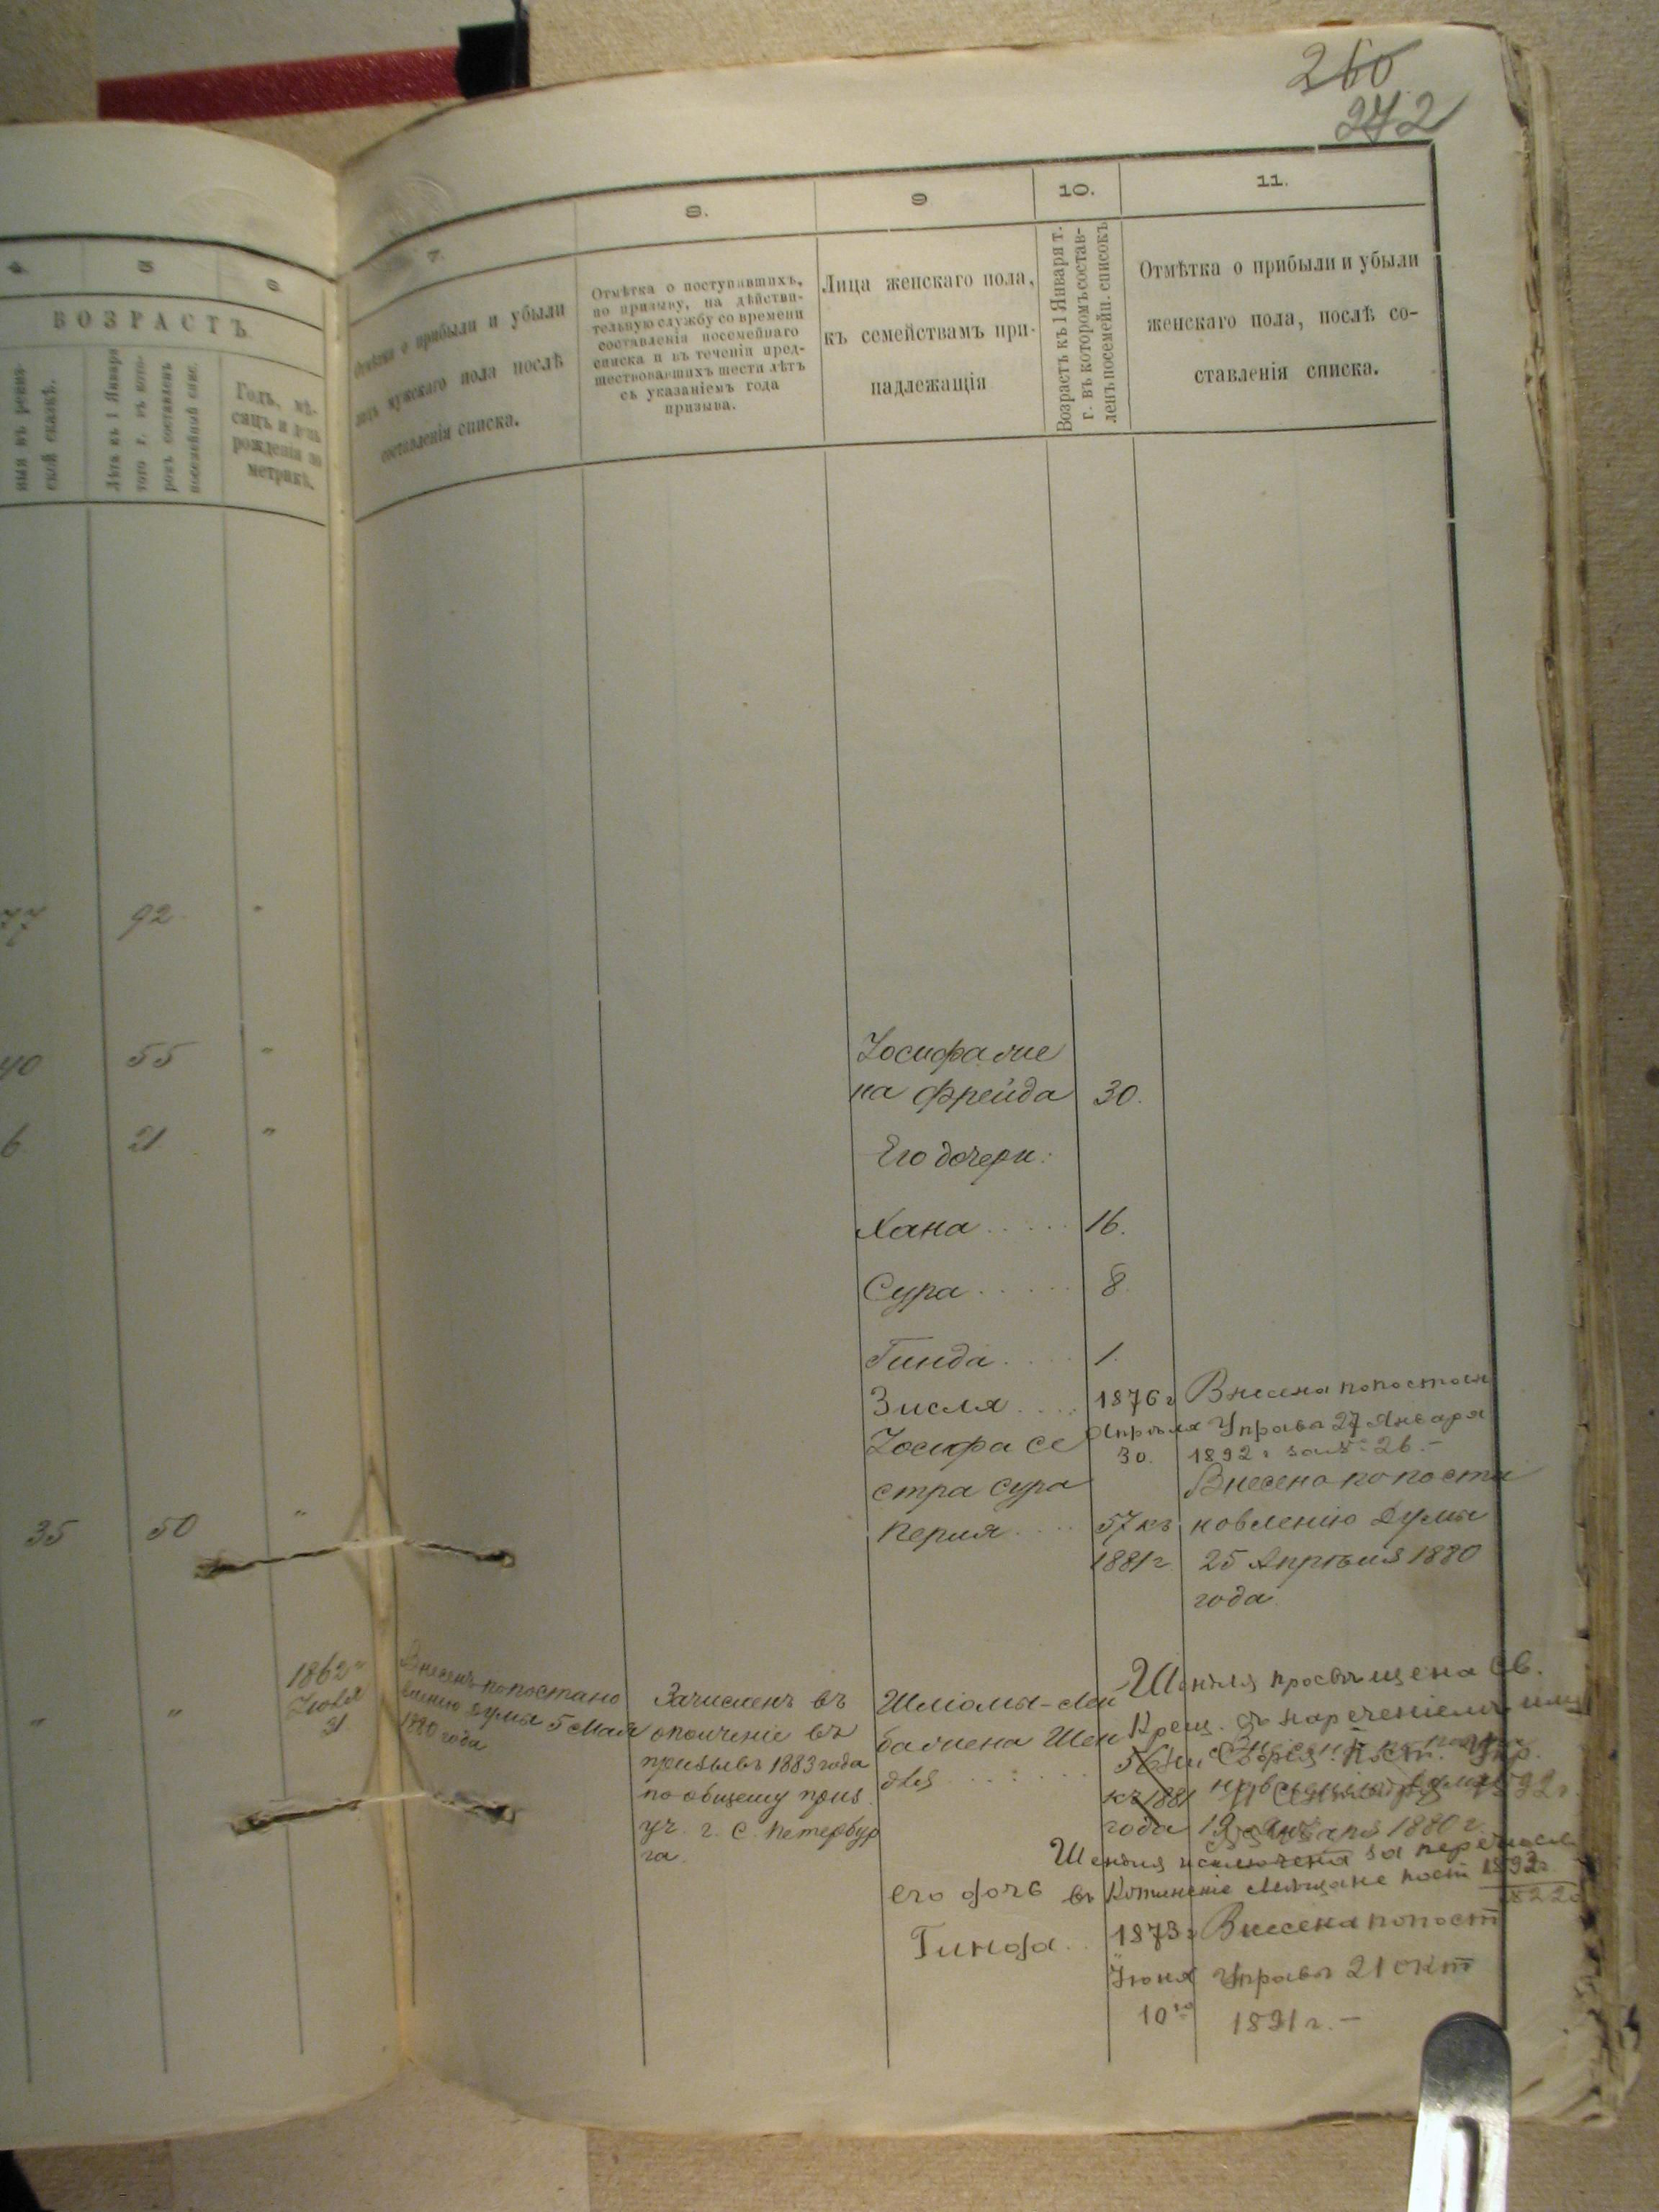 260
272
4
5
6
ВОЗРАСТЪ
ныя въ ревиз-
ской сказкѣ.
Лѣта къ 1 Января
того г. въ кото-
ромъ составленъ
посемейный спис.
Годъ, мѣ-
сяцъ и день
рожденія по
метрикѣ.
77 92 "
40 55 "
6 21 "
35 50 "
" " 1862 г
Іюля
31
7.
8.
9
10.
11.
Отмѣтка о прибыли и убыли
лицъ мужскаго пола послѣ
составленія списка.
Отмѣтка о поступавшихъ,
по призыву, на дѣйстви-
тельную службу со времени
составленія посемейнаго
списка и въ теченіи пред-
шествовавшихъ шести лѣтъ
съ указаніемъ года
призыва.
Лица женскаго пола,
къ семействамъ при-
надлежащія
Возрастъ къ 1 Января т.
г. въ которомъ состав-
ленъ посемейн. списокъ
Отмѣтка о прибыли и убыли
женскаго пола, послѣ со-
ставленія списка.
Іосифа же
на Фрейда 30.
Его дочери:
Хана 16.
Сура 8.
Гинда 1.
Зисля 1876 г Внесена по постан
Апрѣля Управы 27 Января
30. 1892 г за № 26.-
Іосифа се
стра Сура
Перля 57 къ
1881 г.
Внесена по поста
новленію Думы
25 Апрѣля 1880
года.
Внесенъ по постано
вленію Думы 5 Мая
1880 года
Зачисленъ въ
ополченіе въ
призывъ 1883 года
по общему приз.
уч. г. С. Петербур
га.
Шліомы-Лей
ба жена Шен
для
56
къ 1881
года
Шендля просвѣщена Св.
Крещ. съ нареченіемъ
19 1880 г.
Шендля исключена за перечисл
въ мѣщане пост 1892 г.
его дочь
Гинда 1873 г
Іюня
10го
Внесена по пост
Управы 21 окт
1891 г.-